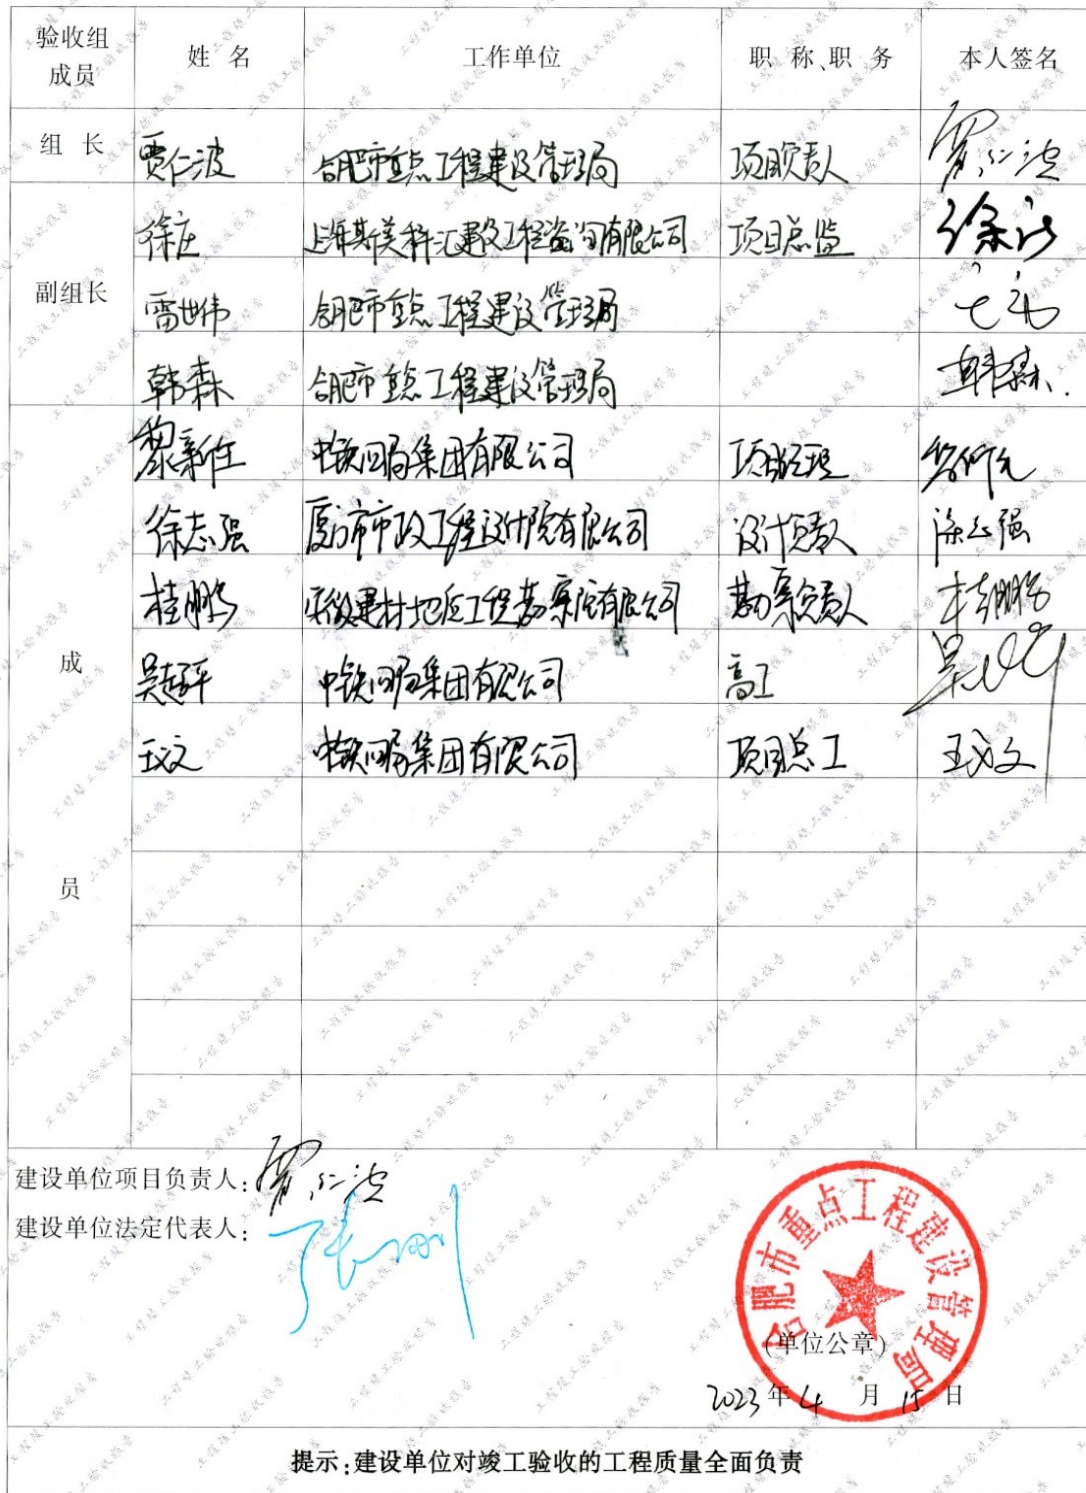 验收组成员 姓名 工作单位 职称、职务 本人签名
组长 贾仁波 合肥市重点工程建设管理局 项目负责人 贾仁波
徐庄 上海斯美科汇建设工程咨询有限公司 项目总监
副组长 雷世伟 合肥市重点工程建设管理局
韩森 合肥市重点工程建设管理局 韩森
黎新在 中铁四局集团有限公司 项目经理
徐志强 厦门市市政工程设计院有限公司 设计负责人 徐志强
桂鹏 安徽建材地质工程勘察院有限公司 勘察负责人 桂鹏
成 吴超平 中铁四局集团有限公司 高工
王义文 中铁四局集团有限公司 项目总工 王义文
员
建设单位项目负责人：贾仁波
建设单位法定代表人：张刚
合肥市重点工程建设管理局
（单位公章）
2023年4月15日
提示：建设单位对竣工验收的工程质量全面负责
工程竣工验收报告